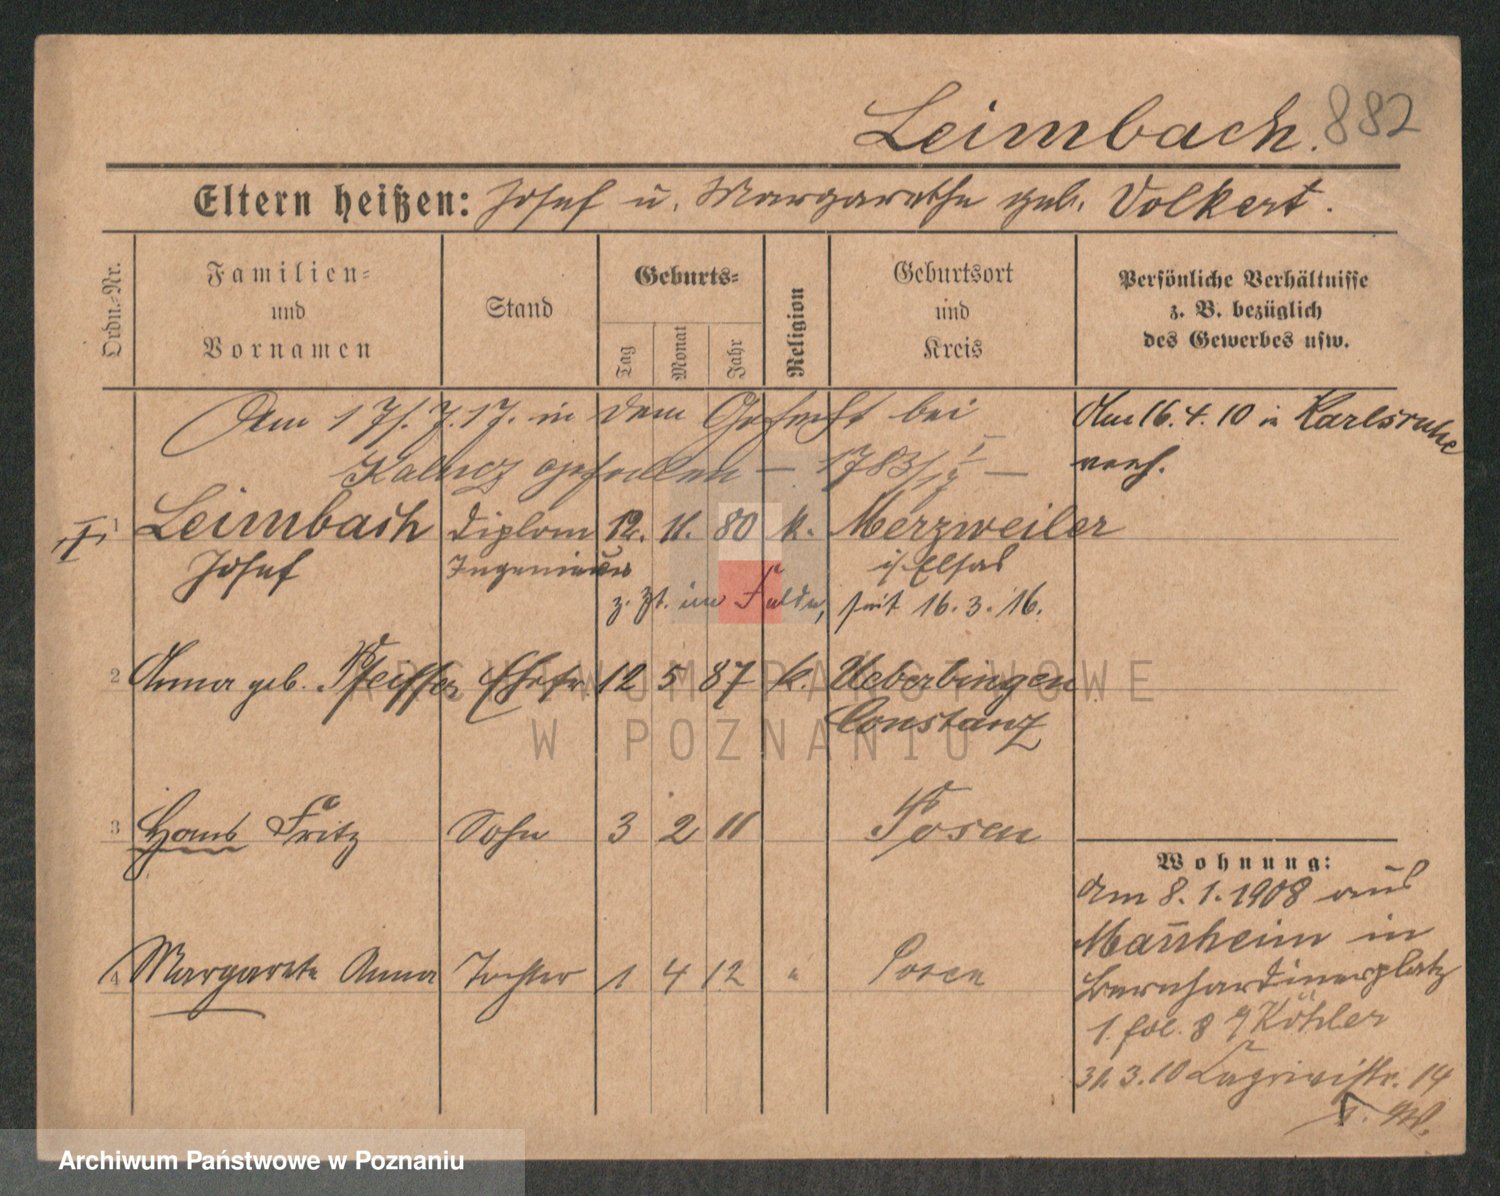 Leimbach. 882
Eltern heißen: Josef u. Margarethe geb. Volkert.
Ordn.-Nr.
Familien- und Vornamen
Stand
Geburts-
Tag
Monat
Jahr
Religion
Geburtsort und Kreis
Persönliche Verhältnisse
z. B. bezüglich
des Gewerbes usw.
Am 17. 7. 17. in dem Gefecht bei
gefallen — 1783/
Am 16. 4. 10 in Karlsruhe
verh.
1 Leimbach Diplom 12. 11. 80 k. Merzweiler
Josef Ingenieur i/Elsaß
z. Zt. im Felde, seit 16. 3. 16.
2 Anna geb. Pfeiffer Ehefr. 12 5 87 k. Ueberlingen
Constanz
3 Hans Fritz Sohn 3 2 11 Posen
4 Margarete Anna Tochter 1 4 12 " Posen
Wohnung:
Am 8. 1. 1908 aus
Mannheim in
Bernhardinerplatz
1. 8 Köhler
31. 3. 10 14
ARCHIWUM PAŃSTWOWE
W POZNANIU
Archiwum Państwowe w Poznaniu